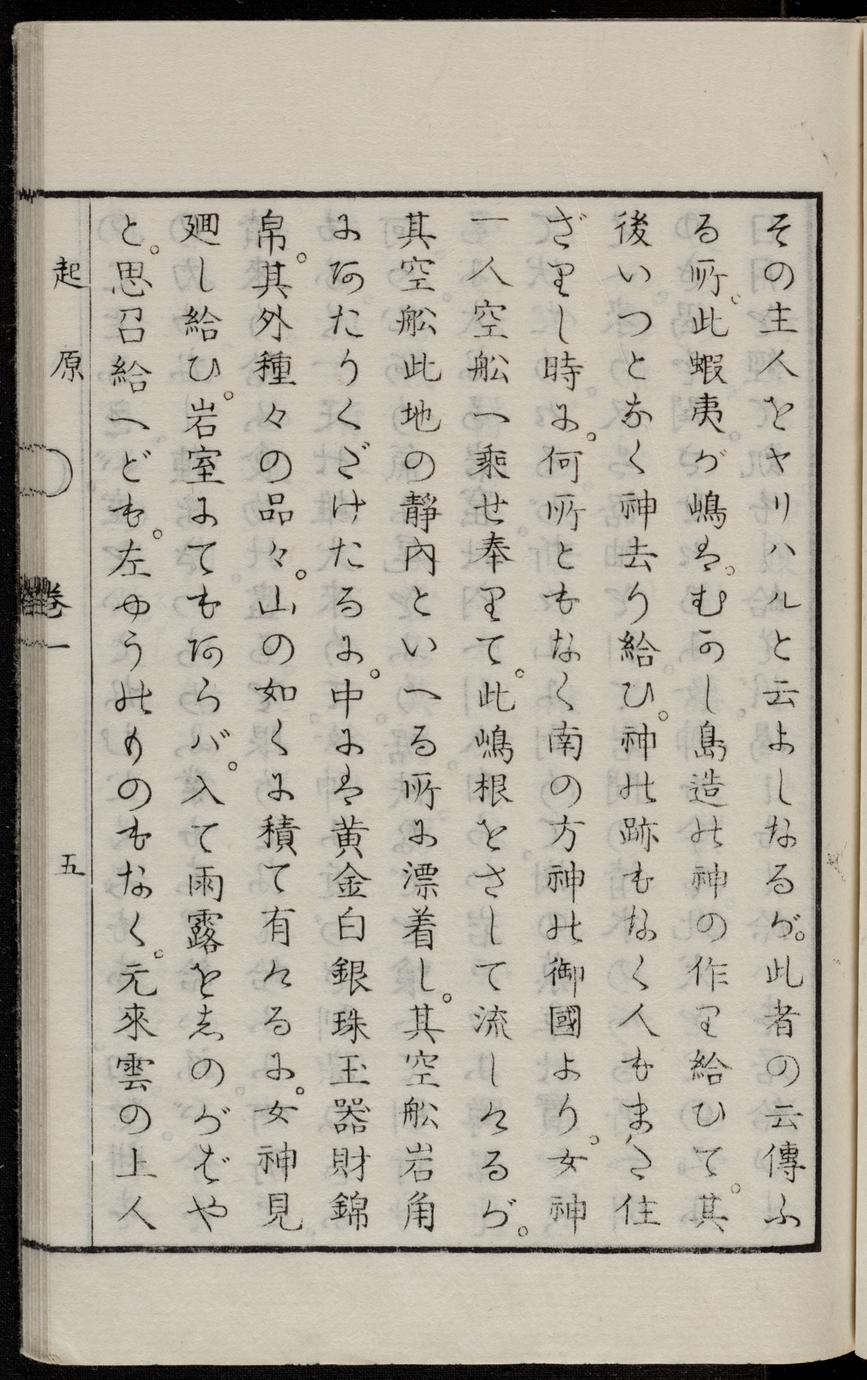 その主人をヤリハルと云よしなるが。此者の云傳ふ
る所。此蝦夷が嶋は。むかし島造の神の作り給ひて。其
後いつとなく神去り給ひ。神の跡もなく人もまだ住
ざりし時に。何所ともなく南の方神の御國より。女神
一人空舩へ乘せ奉りて。此嶋根をさして流しけるが。
其空舩此地の靜内といへる所に漂着し。其空舩岩角
にあたりくだけたるに。中には黄金白銀珠玉器財錦
帛。其外種々の品々。山の如くに積て有けるに。女神見
廻し給ひ。岩室にてもあらバ。入て雨露を志のがばや
と。思召給へども。左ゆうのものもなく。元來雲の上人
起原
卷一
五